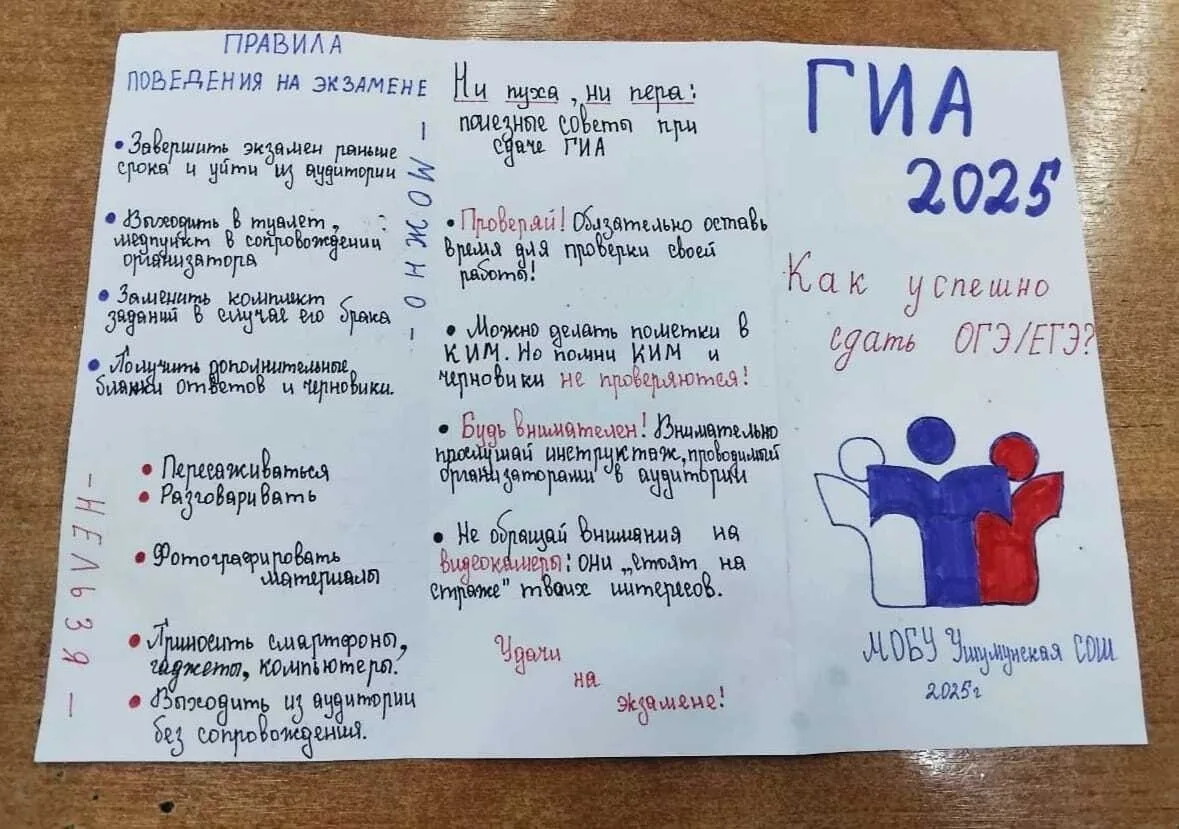 ПРАВИЛА
ПОВЕДЕНИЯ НА ЭКЗАМЕНЕ
- МОЖНО -
• Завершить экзамен раньше
срока и уйти из аудитории
• Выходить в туалет,
медпункт в сопровождении
организатора
• Заменить комплект
заданий в случае его брака
• Получить дополнительные
бланки ответов и черновики.
- НЕЛЬЗЯ -
• Пересаживаться
• Разговаривать
• Фотографировать
материалы
• Приносить смартфоны,
гаджеты, компьютеры!
• Выходить из аудитории
без сопровождения.
Ни пуха, ни пера:
полезные советы при
сдаче ГИА
• Проверяй! Обязательно оставь
время для проверки своей
работы!
• Можно делать пометки в
КИМ. Но помни КИМ и
черновики не проверяются!
• Будь внимателен! Внимательно
прослушай инструктаж, проводимый
организаторами в аудитории
• Не обращай внимания на
видеокамеры: они „стоят на
страже" твоих интересов.
Удачи
на
экзамене!
ГИА
2025
Как успешно
сдать ОГЭ/ЕГЭ?
МОБУ Ушумунская СОШ
2025г